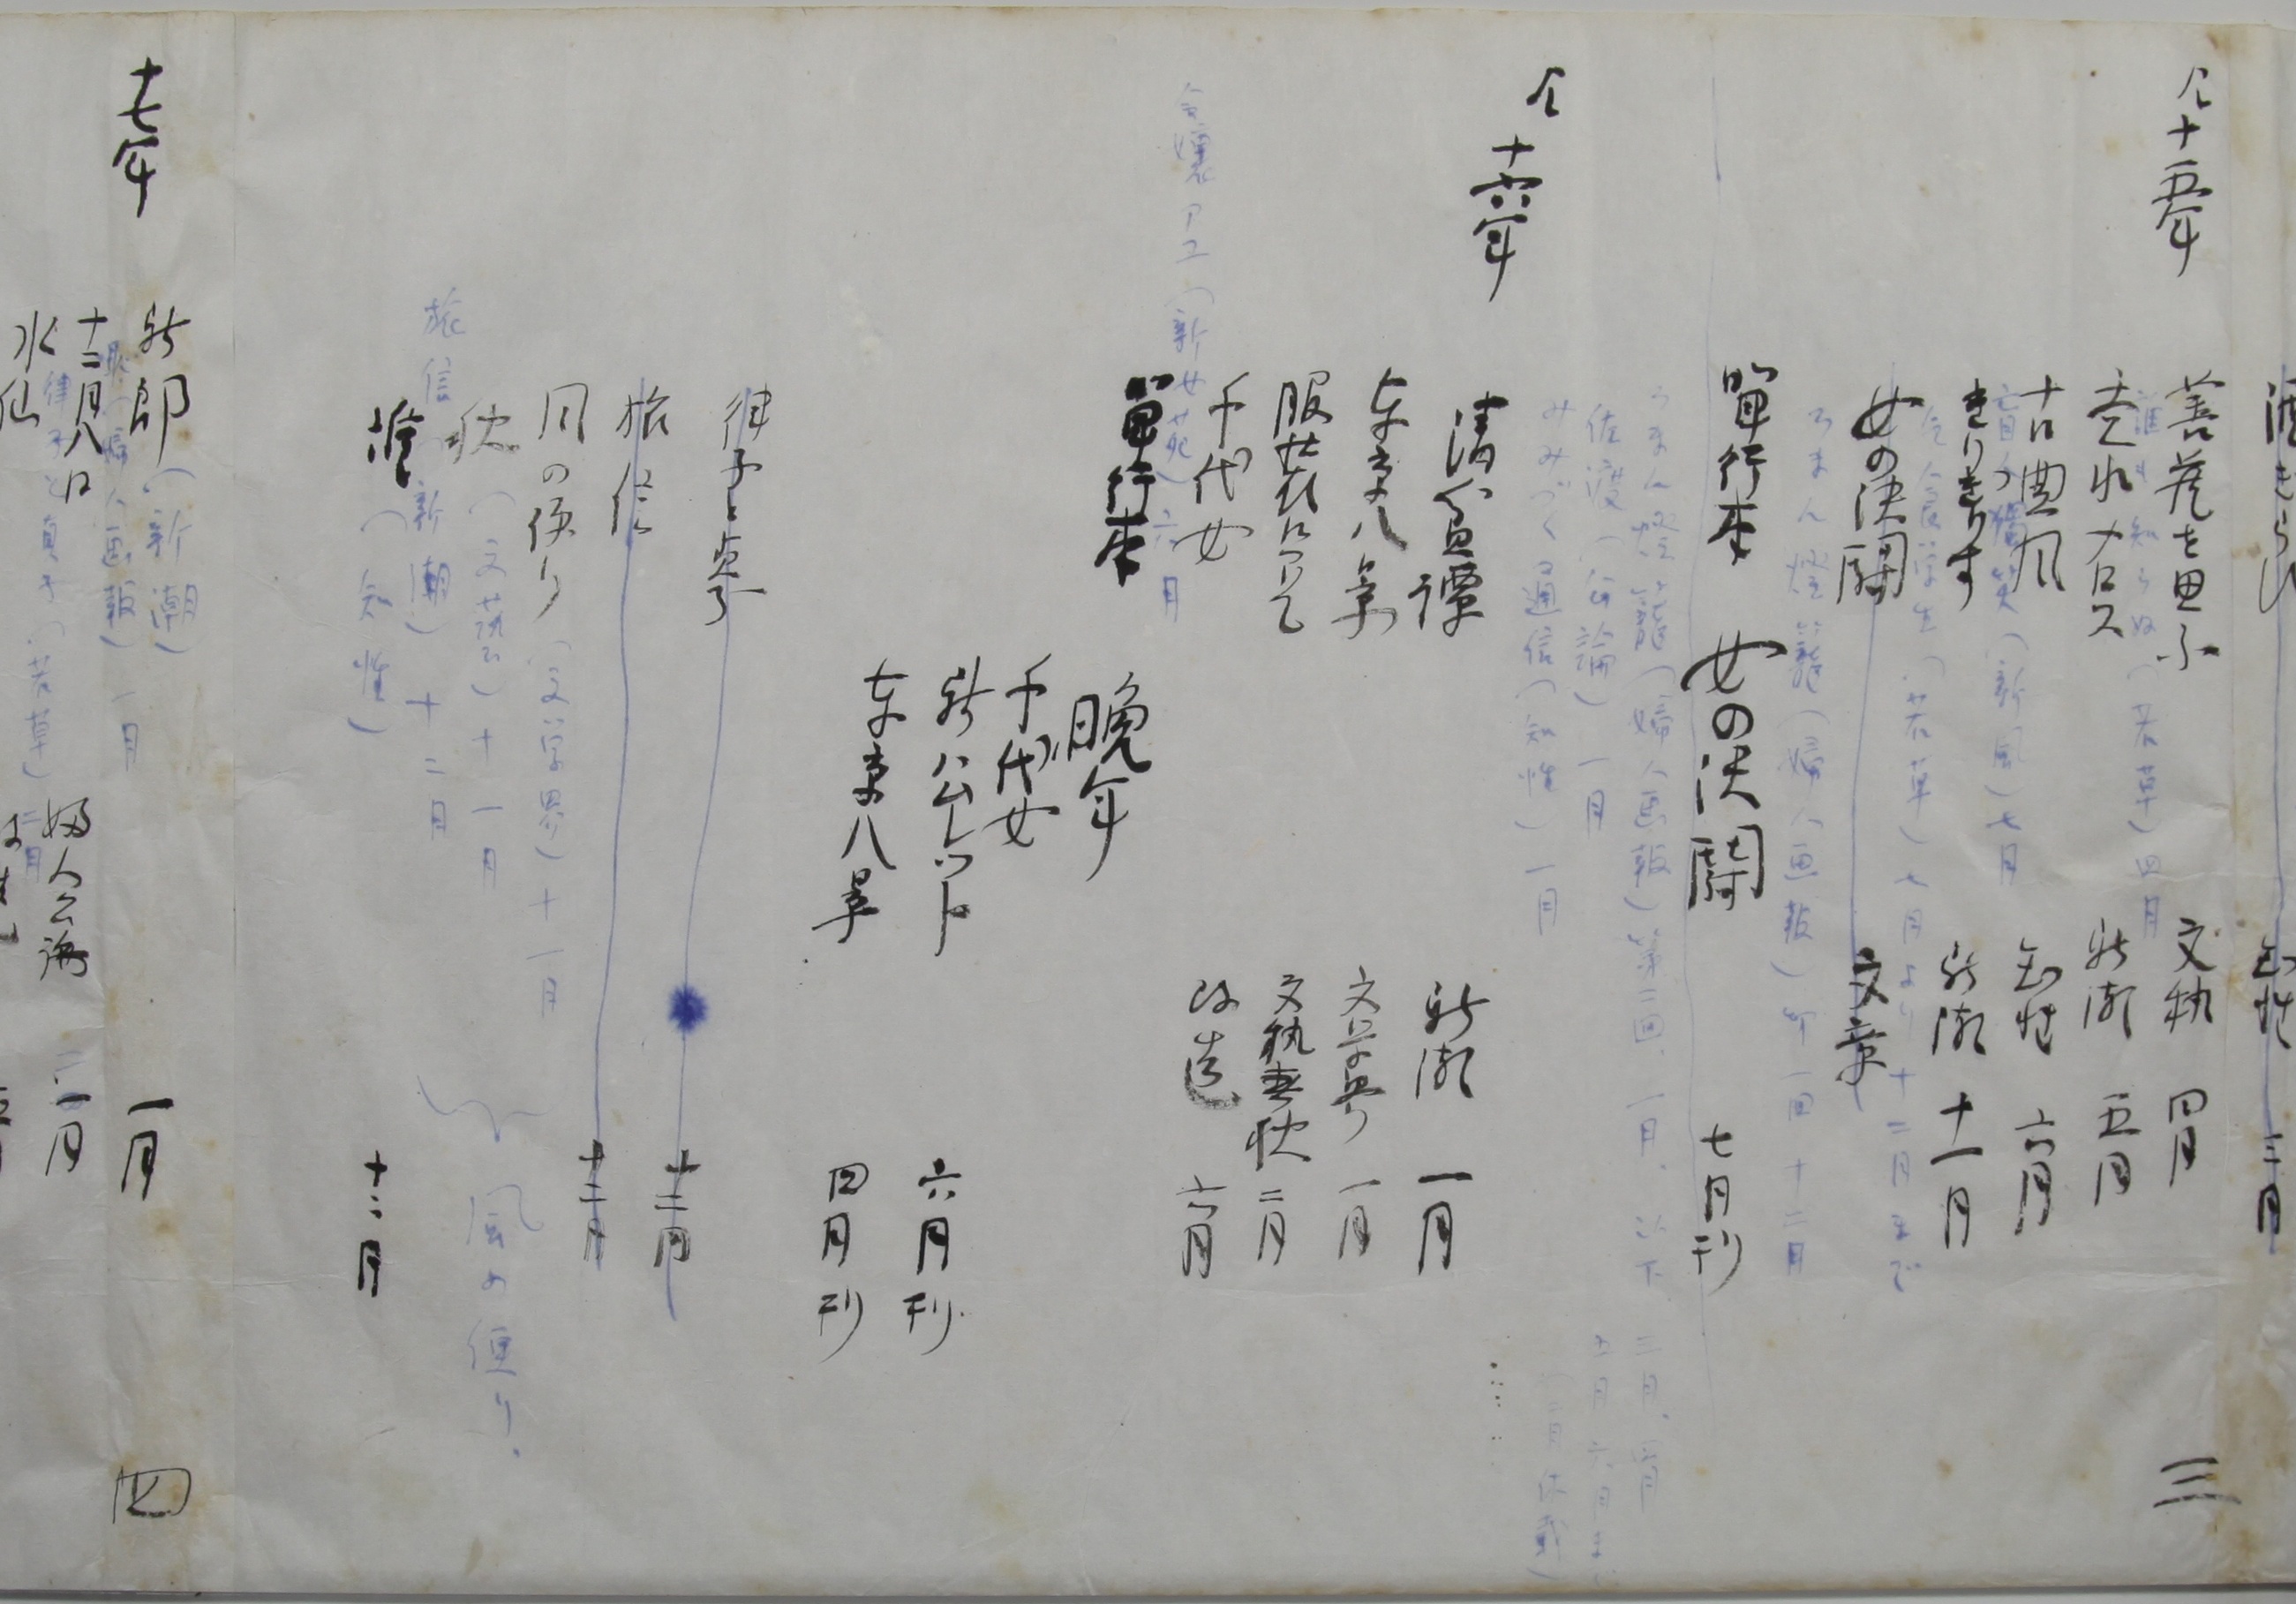 酒ぎらひ 知性 三月
〃十五年
善蔵を思ふ 文執 四月
誰も知らぬ(若草)四月
走れメロス 新潮 五月
古典風 知性 六月
盲人独笑(新風)七月
きりぎりす 新潮 十一月
乞食学生(若草)七月より十二月まで
女の決闘 文章
ろまん燈籠(婦人画報)第一回 十二月
単行本 女の決闘 七月刊
ろまん燈籠(婦人画報)第二回、一月、以下
佐渡(公論)一月
みみづく通信(知性)一月
〃十六年
清貧譚 新潮 一月
東京八景 文学界 一月
服装に就て 文藝春秋 二月
千代女 改造 六月
令嬢アユ(新女苑)六月
単行本
晩年
千代女
新ハムレット 六月刊
東京八景 四月刊
律子と貞子 十二月
旅信 十二月
風の便り(文学界)十一月
秋(文芸)十一月
旅信(新潮)十二月
風の便り.
誰(知性) 十二月
十七年
新郎(新潮) 一月
恥(婦人画報)一月
十二月八日 婦人公論 二月
律子と貞子(若草)二月
水仙 改造
三
四